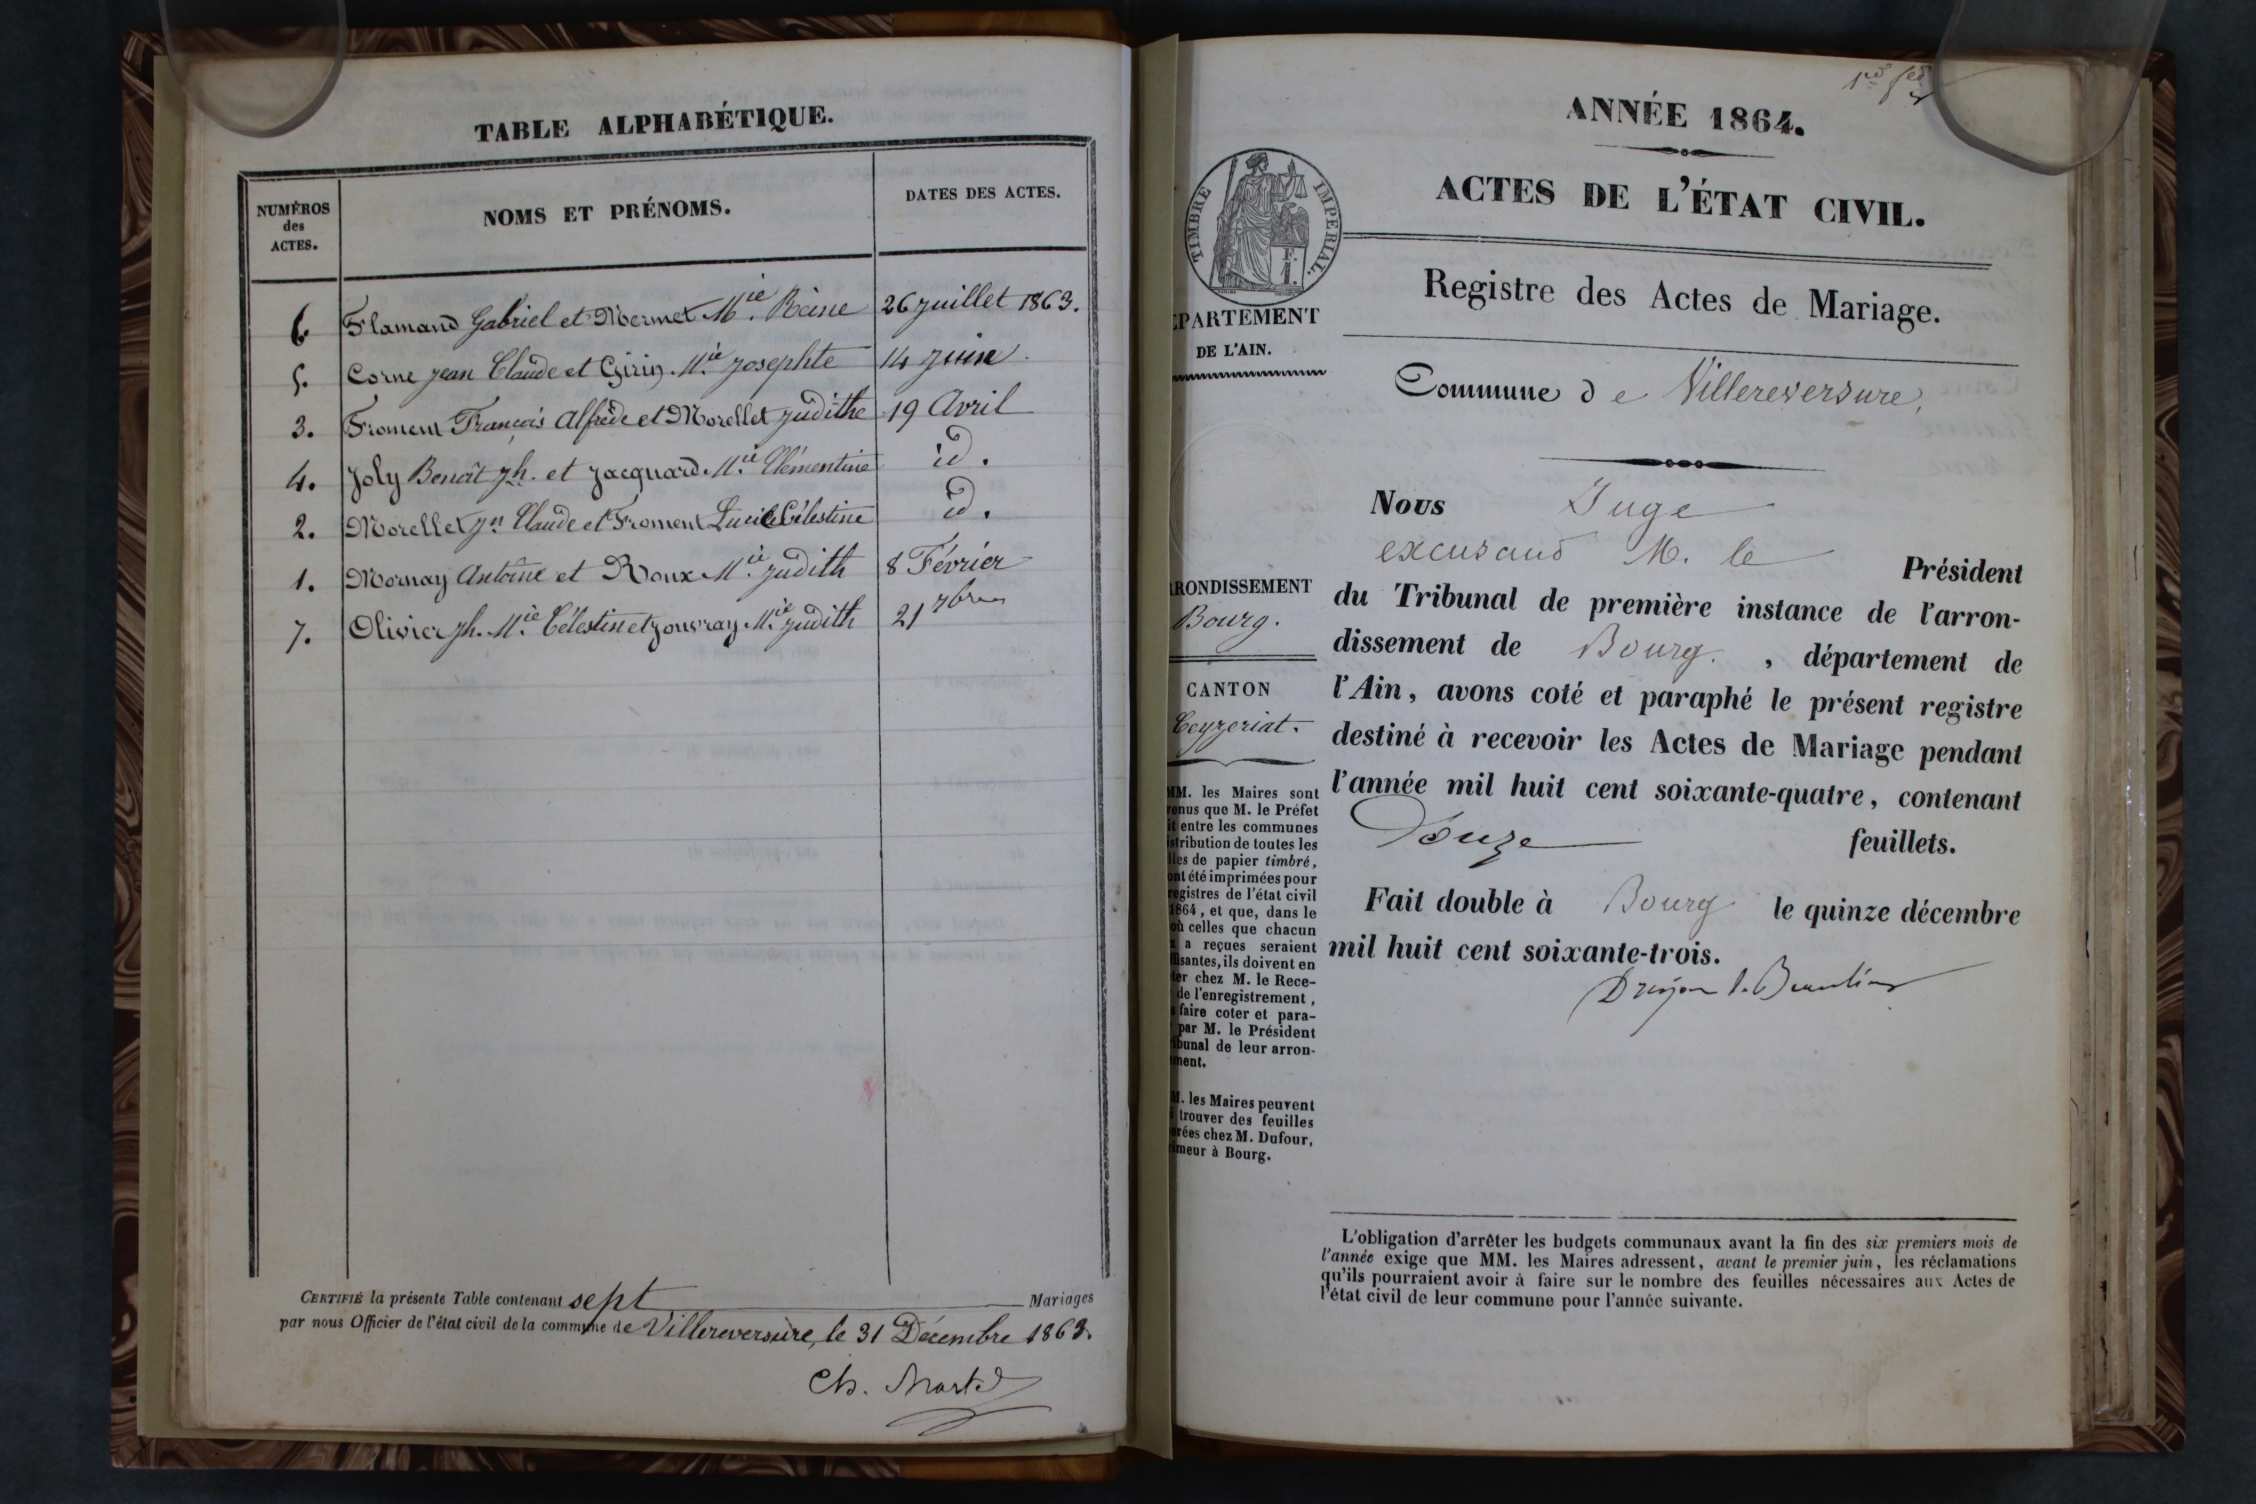 TABLE ALPHABÉTIQUE.
NUMÉROS
des
ACTES.
NOMS ET PRÉNOMS.
DATES DES ACTES.
6 Flamand Gabriel et Mermet Mie. Reine 26 juillet 1863.
5. Corne jean Claude et Girin Mie. josephte 14 juin.
3. Froment François Alfrède et Morellet judithe 19 Avril
4. Joly Benoît jh. et jacquard Mie. Clémentine id.
2. Morellet jn Claude et Froment Lucile Célestine id.
1. Mornay Antoine et Roux Mie. judith 8 Février
7. Olivier jh. Mie. Célestin et jouvray Mie. judith 21 7bre
CERTIFIÉ la présente Table contenant sept Mariages
par nous Officier de l'état civil de la commune de Villereversure, le 31 Décembre 1863.
Ch. Martel
ANNÉE 1864.
ACTES DE L'ÉTAT CIVIL.
TIMBRE IMPÉRIAL.
F.
1.
Registre des Actes de Mariage.
ÉPARTEMENT
DE L'AIN.
Commune de Villereversure,
Nous Juge
excusand M. le Président
du Tribunal de première instance de l'arron-
dissement de Bourg. , département de
l'Ain, avons coté et paraphé le présent registre
destiné à recevoir les Actes de Mariage pendant
l'année mil huit cent soixante-quatre, contenant
Douze feuillets.
Fait double à Bourg le quinze décembre
mil huit cent soixante-trois.
RRONDISSEMENT
Bourg.
CANTON
Ceyzeriat.
MM. les Maires sont
venus que M. le Préfet
it entre les communes
stribution de toutes les
lles de papier timbré,
ont été imprimées pour
registres de l'état civil
1864, et que, dans le
où celles que chacun
a reçues seraient
ffisantes, ils doivent en
ter chez M. le Rece-
de l'enregistrement,
faire coter et para-
par M. le Président
ibunal de leur arron-
ment.
M. les Maires peuvent
trouver des feuilles
brées chez M. Dufour,
imeur à Bourg.
L'obligation d'arrêter les budgets communaux avant la fin des six premiers mois de
l'année exige que MM. les Maires adressent, avant le premier juin, les réclamations
qu'ils pourraient avoir à faire sur le nombre des feuilles nécessaires aux Actes de
l'état civil de leur commune pour l'année suivante.